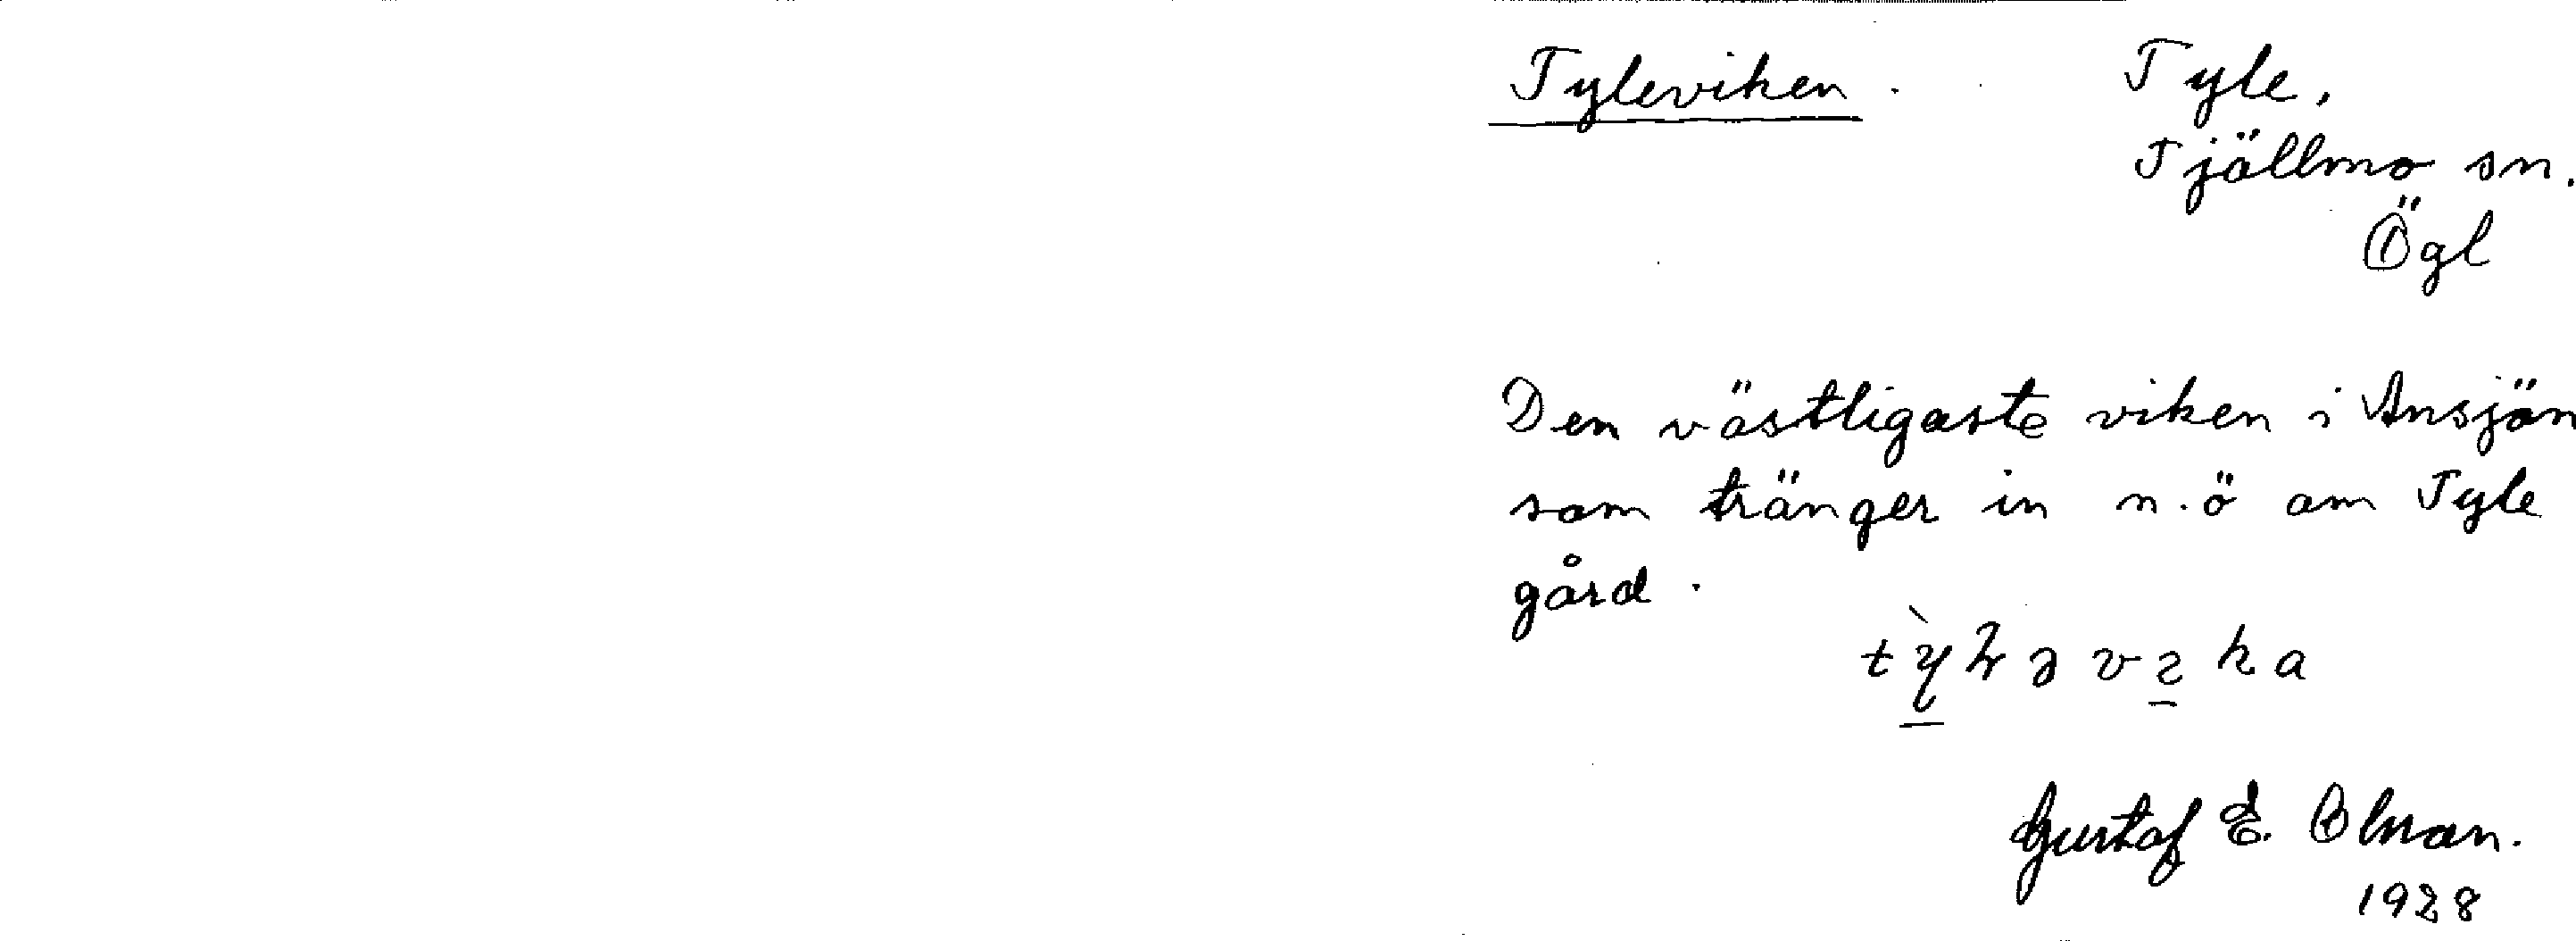 Tyleviken. Tyle,
Tjällmo sn.
Ögl
Den västligaste viken i Ansjön
som tränger in n.ö om Tyle
gård.
Gustaf E. Olman.
1928